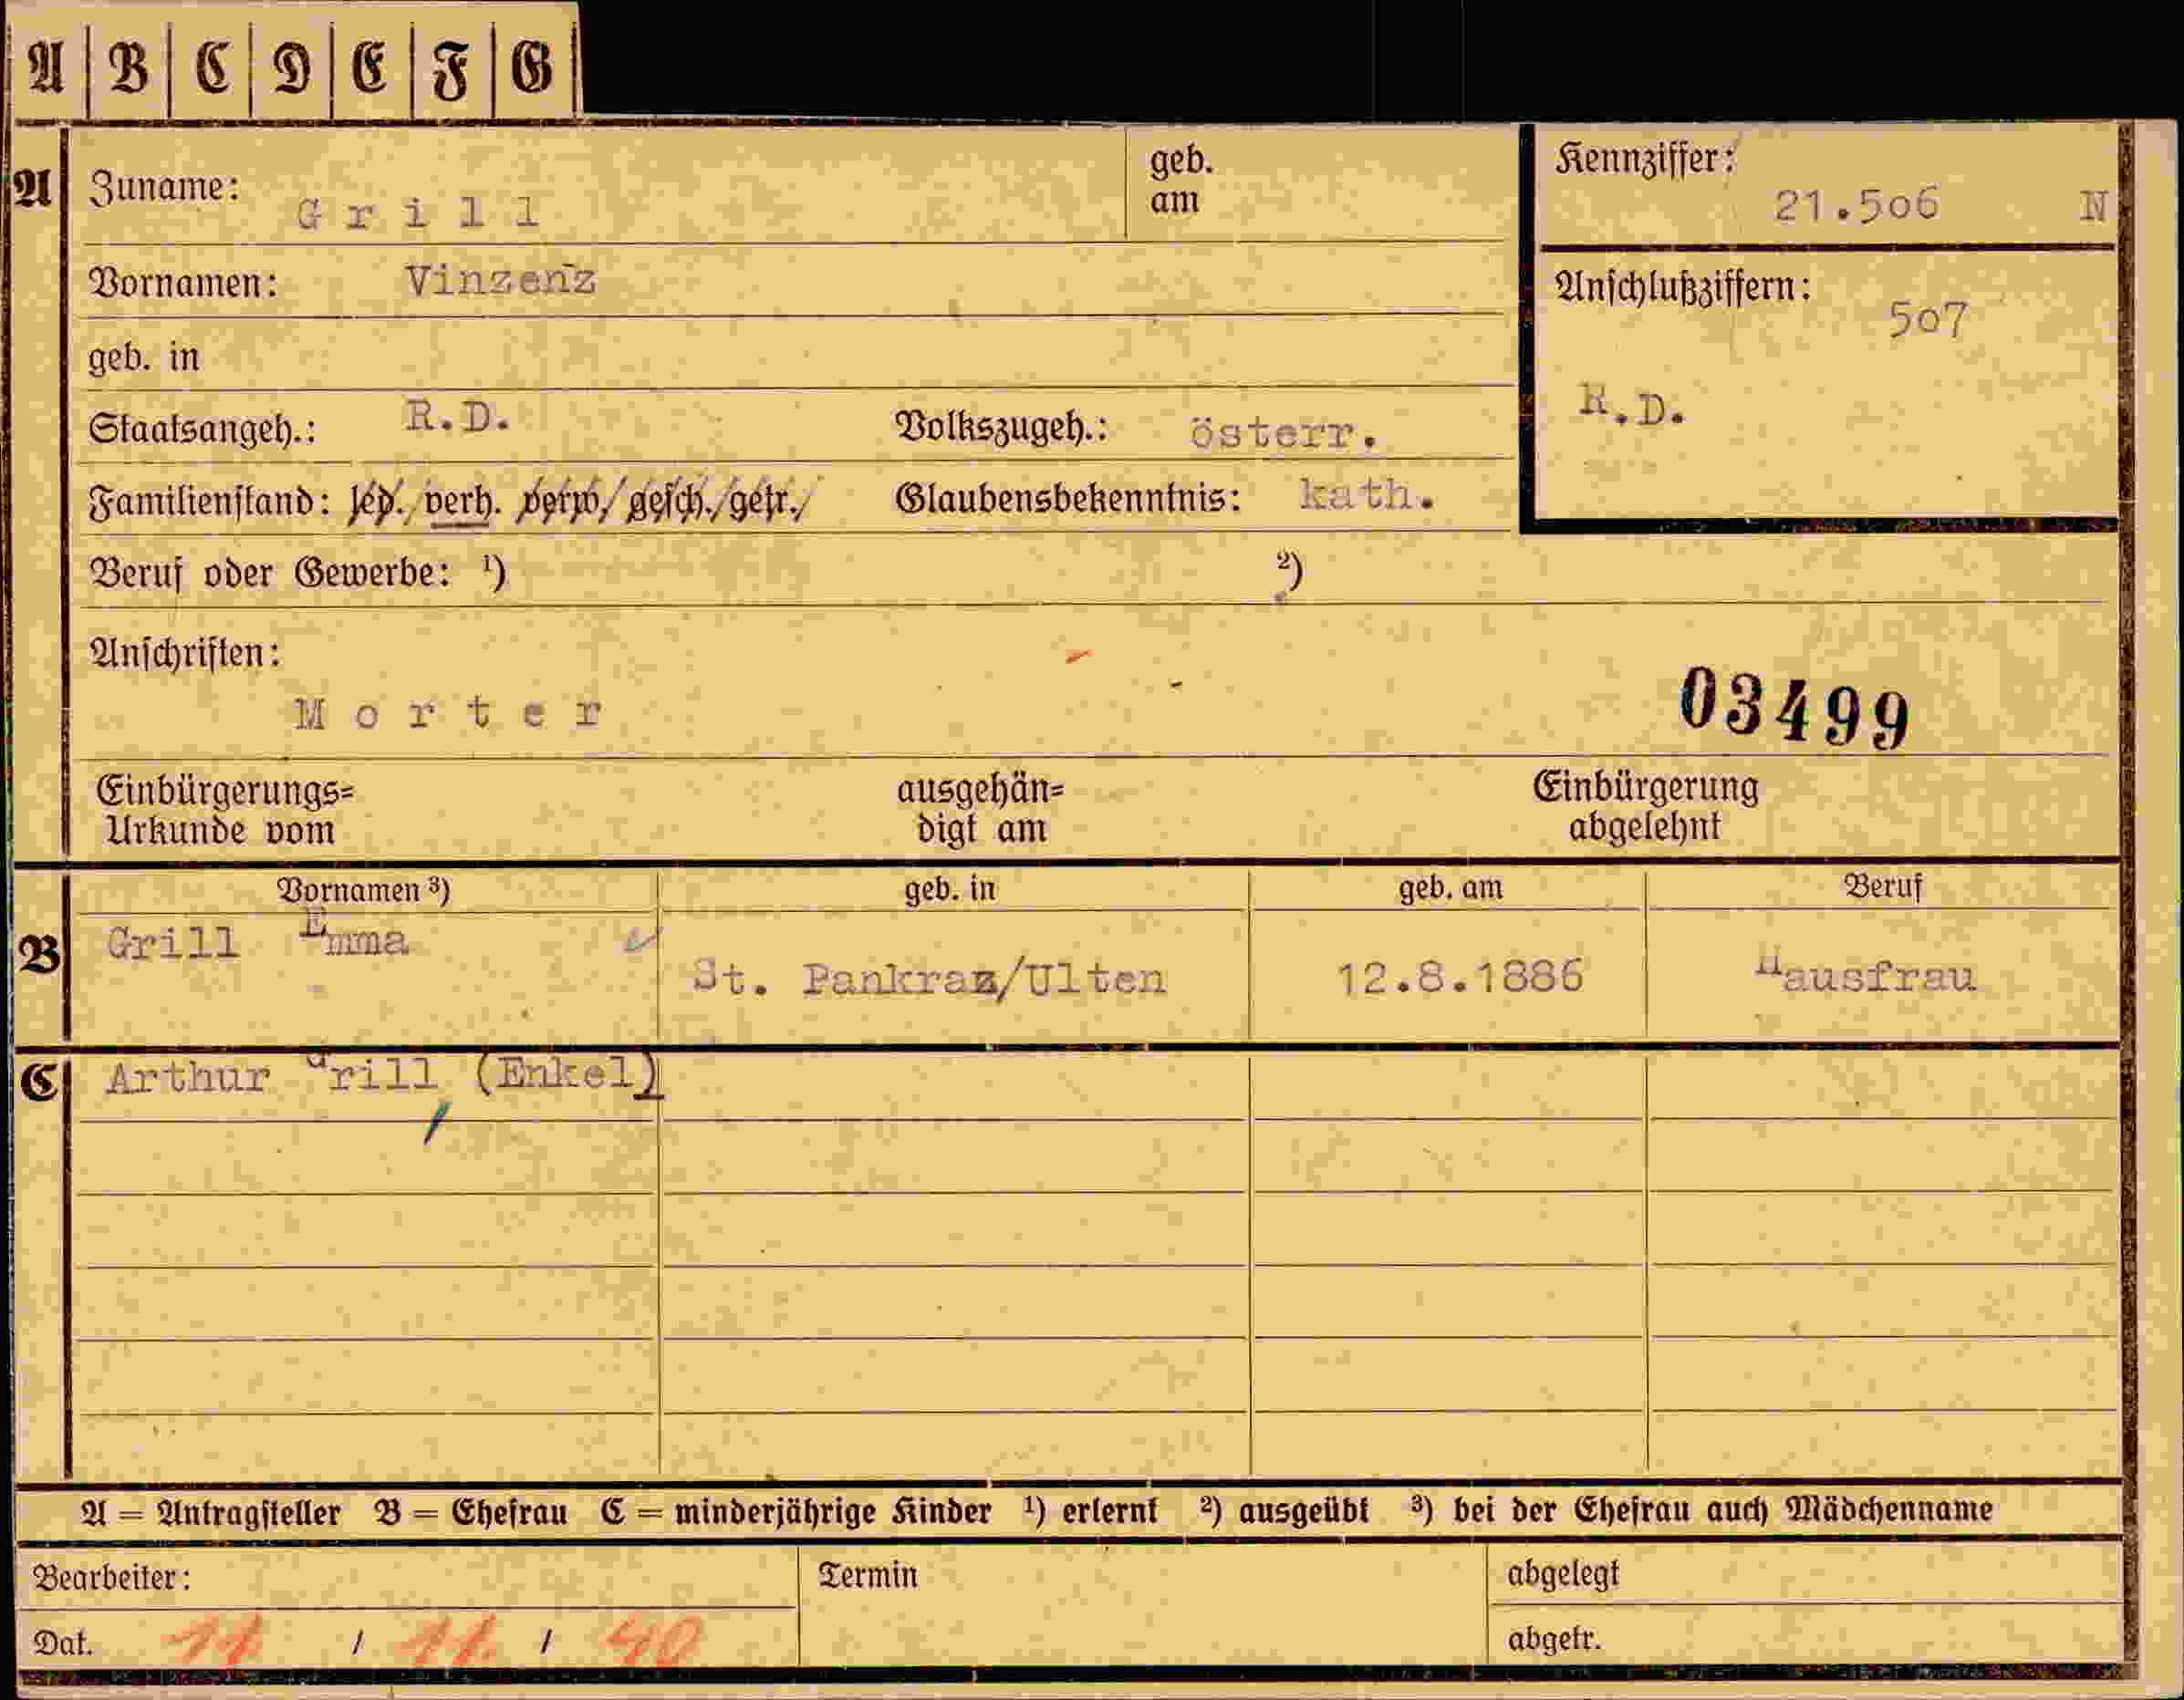 A B C D E F G
A Zuname: Grill geb. am
Kennziffer: 21.5o6 N
Vornamen: Vinzenz
Anschlußziffern: 5o7
geb. in
R.D.
Staatsangeh.: R.D. Volkszugeh.: österr.
Familienstand: led./verh. verw/gesch./getr./ Glaubensbekenntnis: kath.
Beruf oder Gewerbe: ¹) ²)
Anschriften:
Morter
03499
Einbürgerungs=
Urkunde vom
ausgehän=
digt am
Einbürgerung
abgelehnt
Vornamen ³) geb. in geb. am Beruf
B Grill Emma St. Pankraz/Ulten 12.8.1886 Hausfrau
C Arthur Grill (Enkel)
A = Antragsteller B = Ehefrau C = minderjährige Kinder ¹) erlernt ²) ausgeübt ³) bei der Ehefrau auch Mädchenname
Bearbeiter: Termin abgelegt
Dat. 11 / 11. / 40 abgetr.